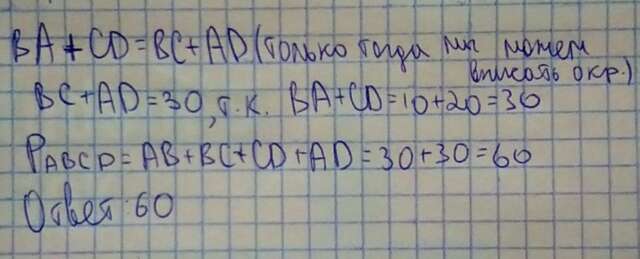 BA+CD=BC+AD(только тогда мы можем
вписать окр.)
BC+AD=30, т.к. BA+CD=10+20=30
PABCD=AB+BC+CD+AD=30+30=60
Ответ:60